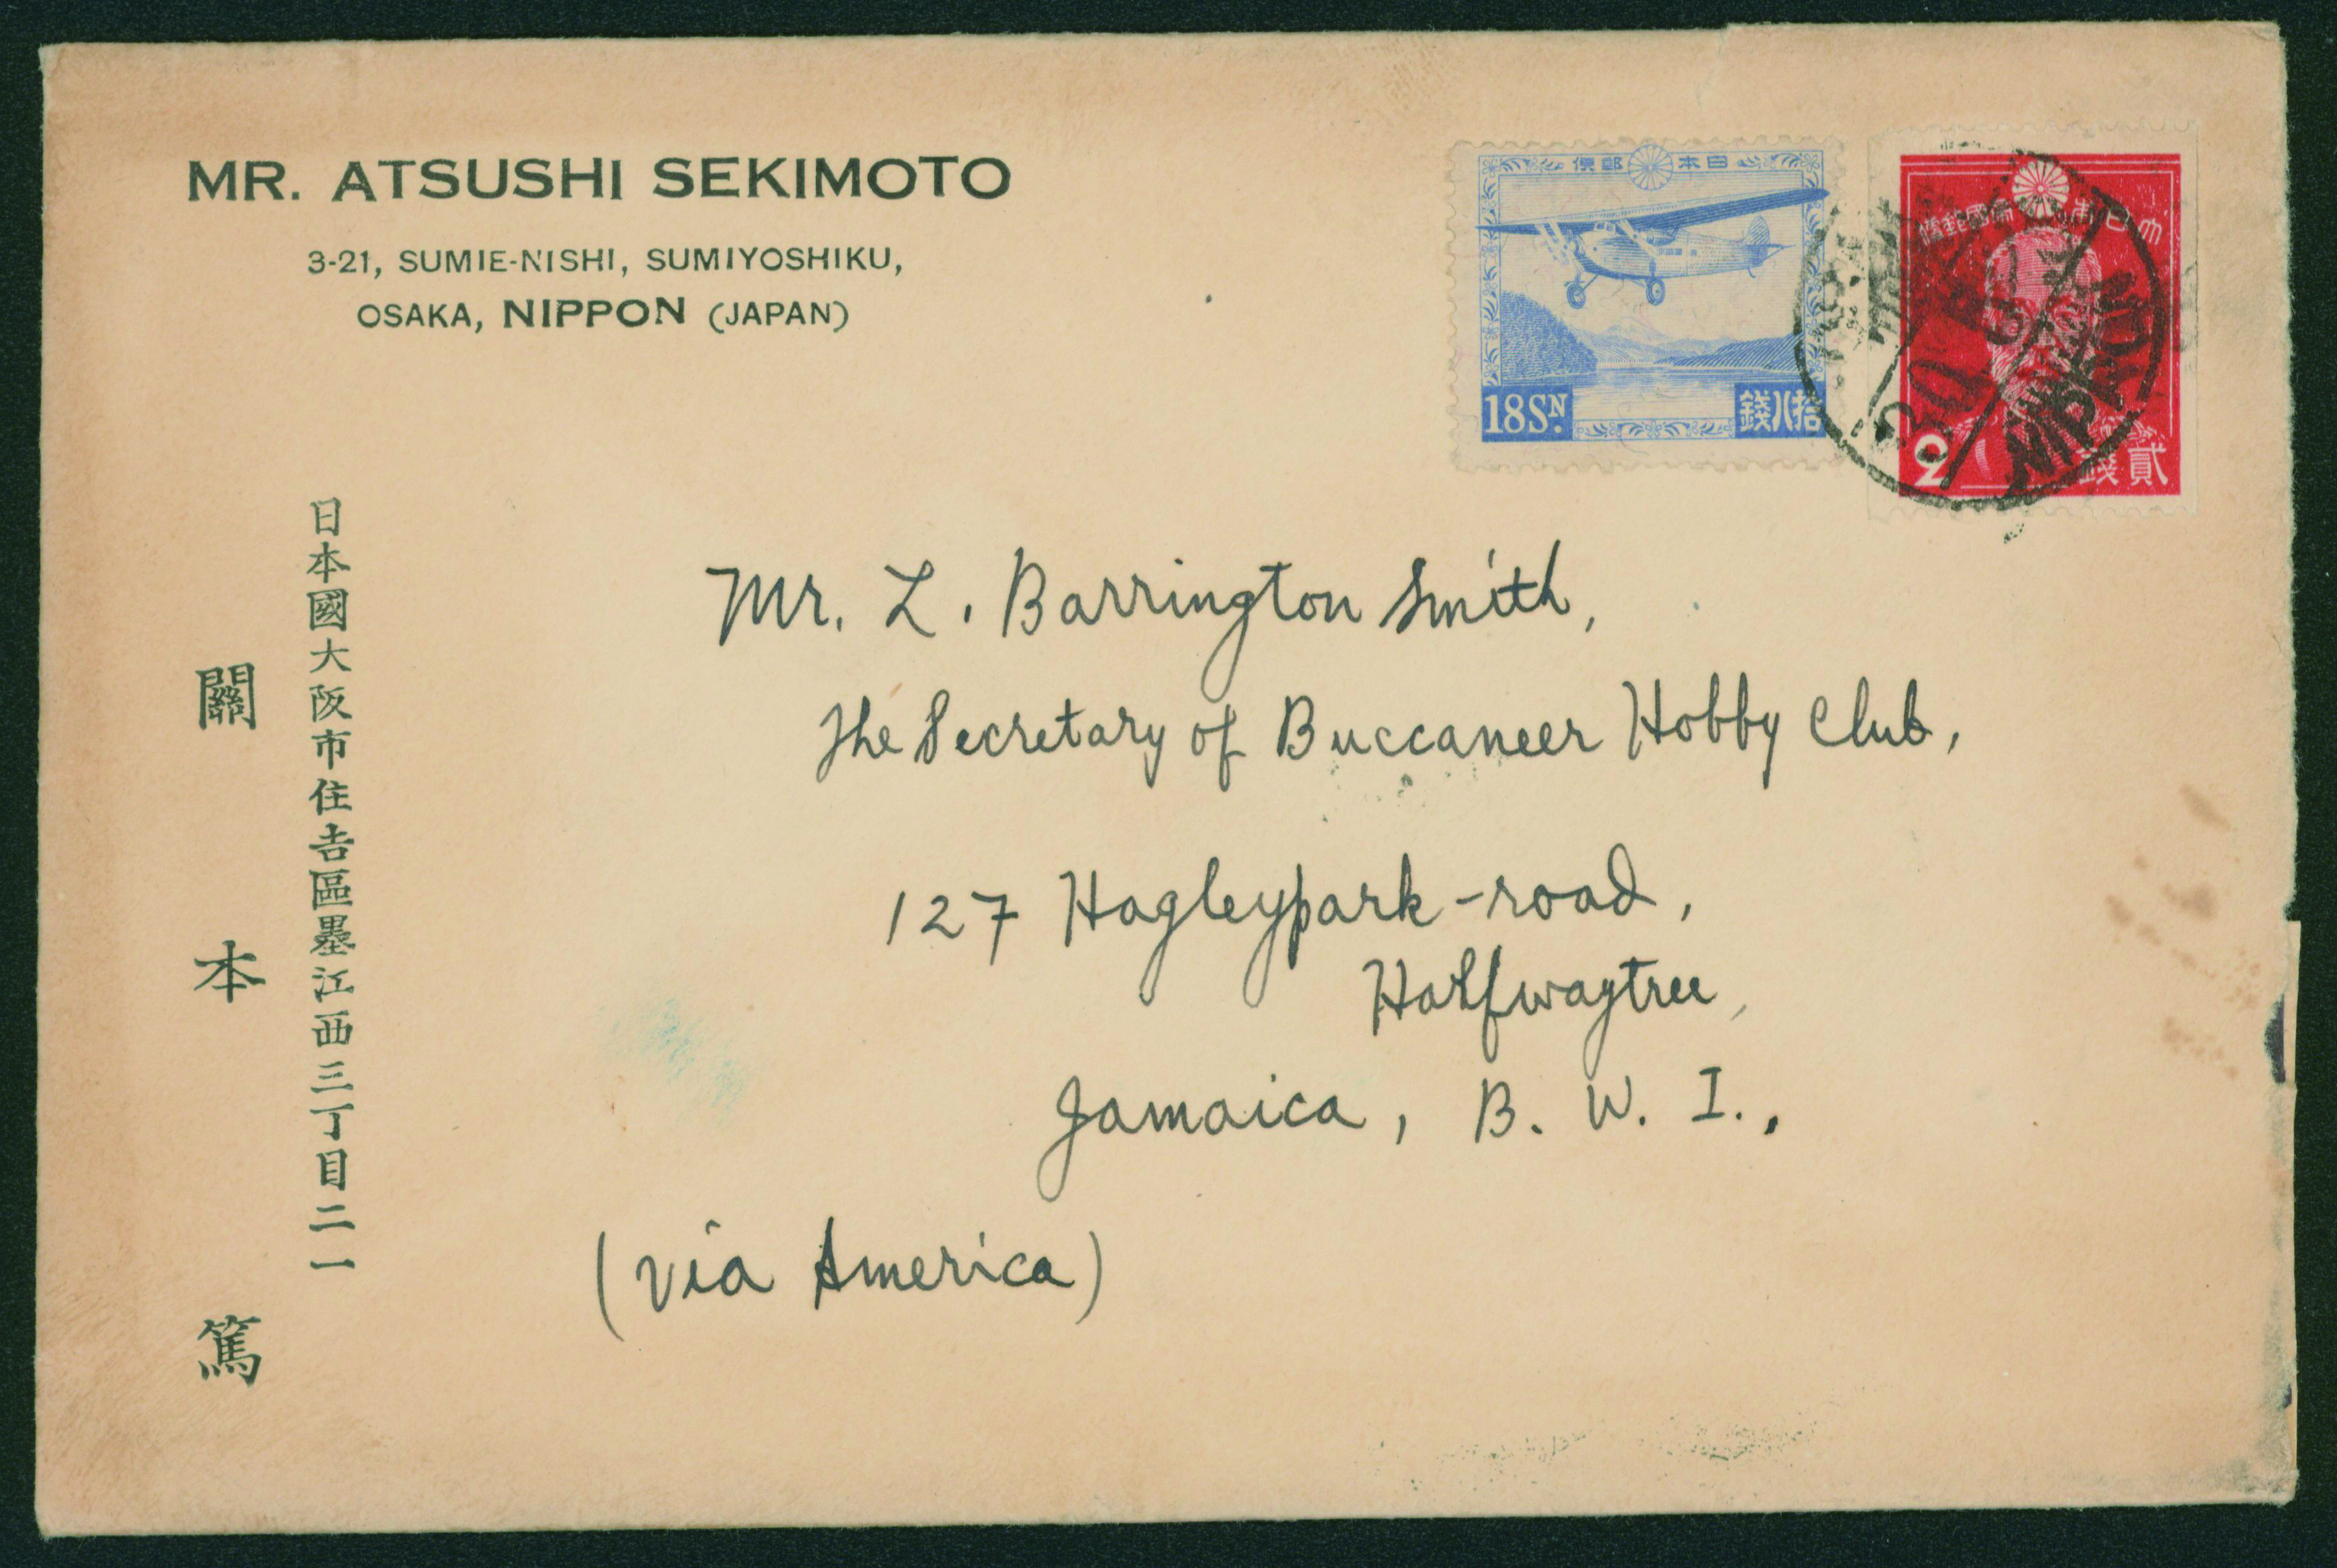 MR. ATSUSHI SEKIMOTO
3-21, SUMIE-NISHI, SUMIYOSHIKU,
OSAKA, NIPPON (JAPAN)
便郵本日
18SN.
錢八拾
便郵國帝本日大
2
錢貳
NIPPON
日本國大阪市住吉區墨江西三丁目二一
關本篤
Mr. L. Barrington Smith,
The Secretary of Buccaneer Hobby Club,
127 Hagleypark-road,
Halfwaytree,
Jamaica, B. W. I.,
(via America)